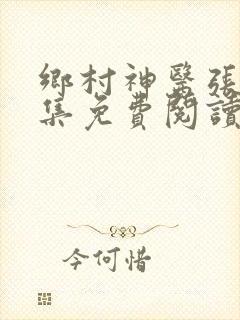 鄉村神醫張
集免費閱讀
今何惜